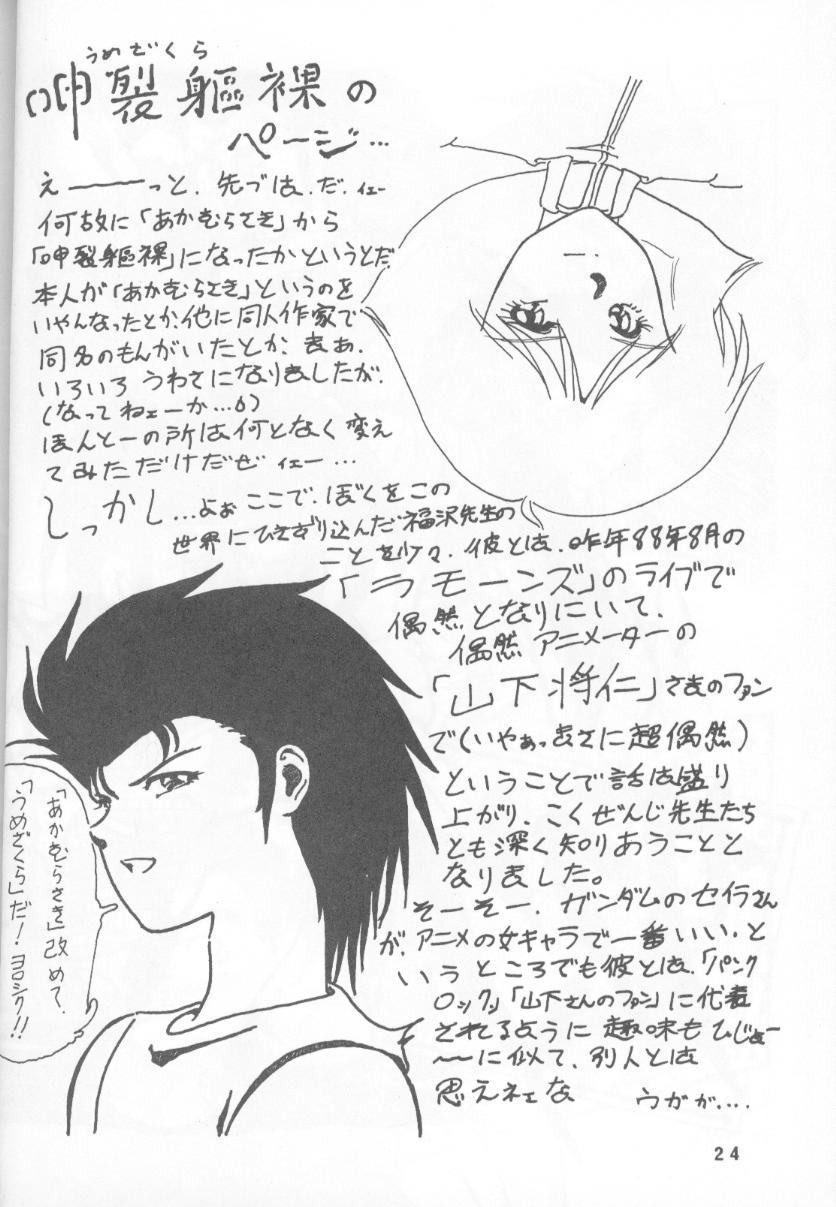 うめざくら
呻裂軀裸の
ページ…
えーーーっと、先づは、だ、イェー
何故に「あかむらさき」から
「呻裂軀裸」になったかというとだ、
本人が「あかむらさき」というのを
いやんなったとか、他に同人作家で
同名のもんがいたとか、まぁ、
いろいろうわさになりましたが、
(なってねェーか…。)
ほんとーの所は何となく変え
てみただけだぜ イェー…
しっかし…よぉ ここで、ぼくをこの
世界にひきずり込んだ福沢先生の
ことを少々、彼とは、昨年88年8月の
「ラモーンズ」のライブで
偶然となりにいて、
偶然アニメーターの
「山下将仁」さまのファン
で(いやぁっまさに超偶然)
ということで話は盛り
上がり、こくぜんじ先生たち
とも深く知りあうことと
なりました。
そーそー、ガンダムのセイラさん
が、アニメの女キャラで一番いい、と
いうところでも彼とは、「パンク
ロック」「山下さんのファン」に代表
されるように趣味もひじょー
〜〜に似て、別人とは
思えネェな ウガガ….
「あかむらさき」改めて、
「うめざくら」だ!ヨロシク!!
24